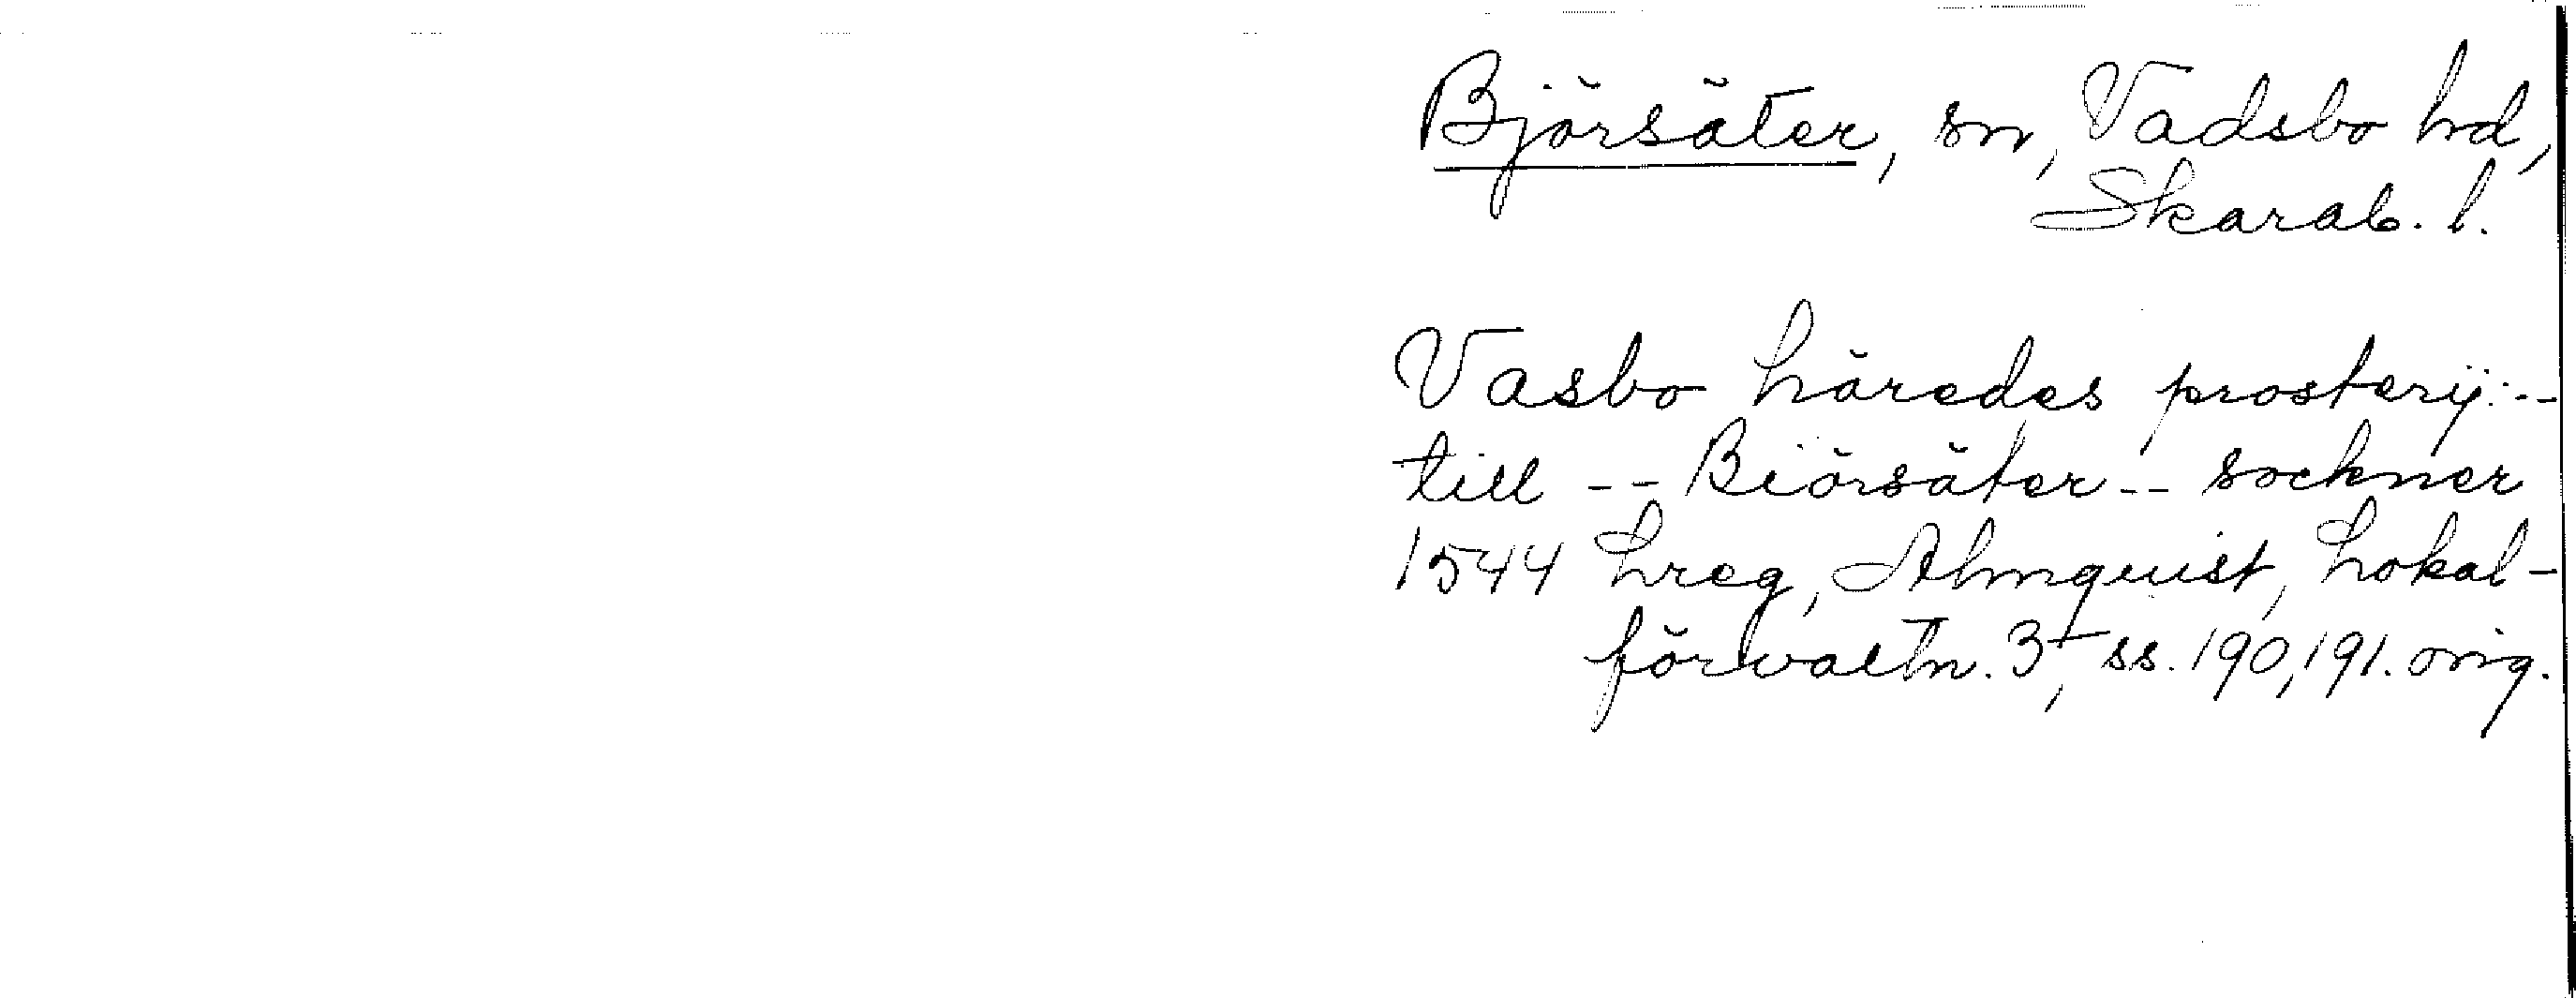 Björsäter, sn, Vadsbo hd,
Skarab. l.
Vasbo häredes prosterij: --
till -- Biörsäter -- sockner
1544 Lreg, Almquist, Lokal-
förvaltn. 3, ss. 190, 191. orig.